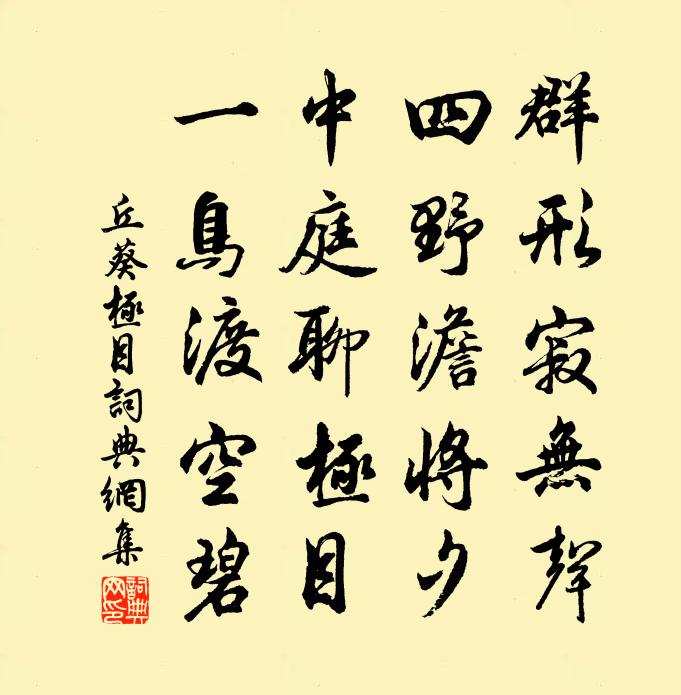 群形寂無聲
四野澹將夕
中庭聊極目
一鳥渡空碧
丘葵極目詞典網集
詞典網印